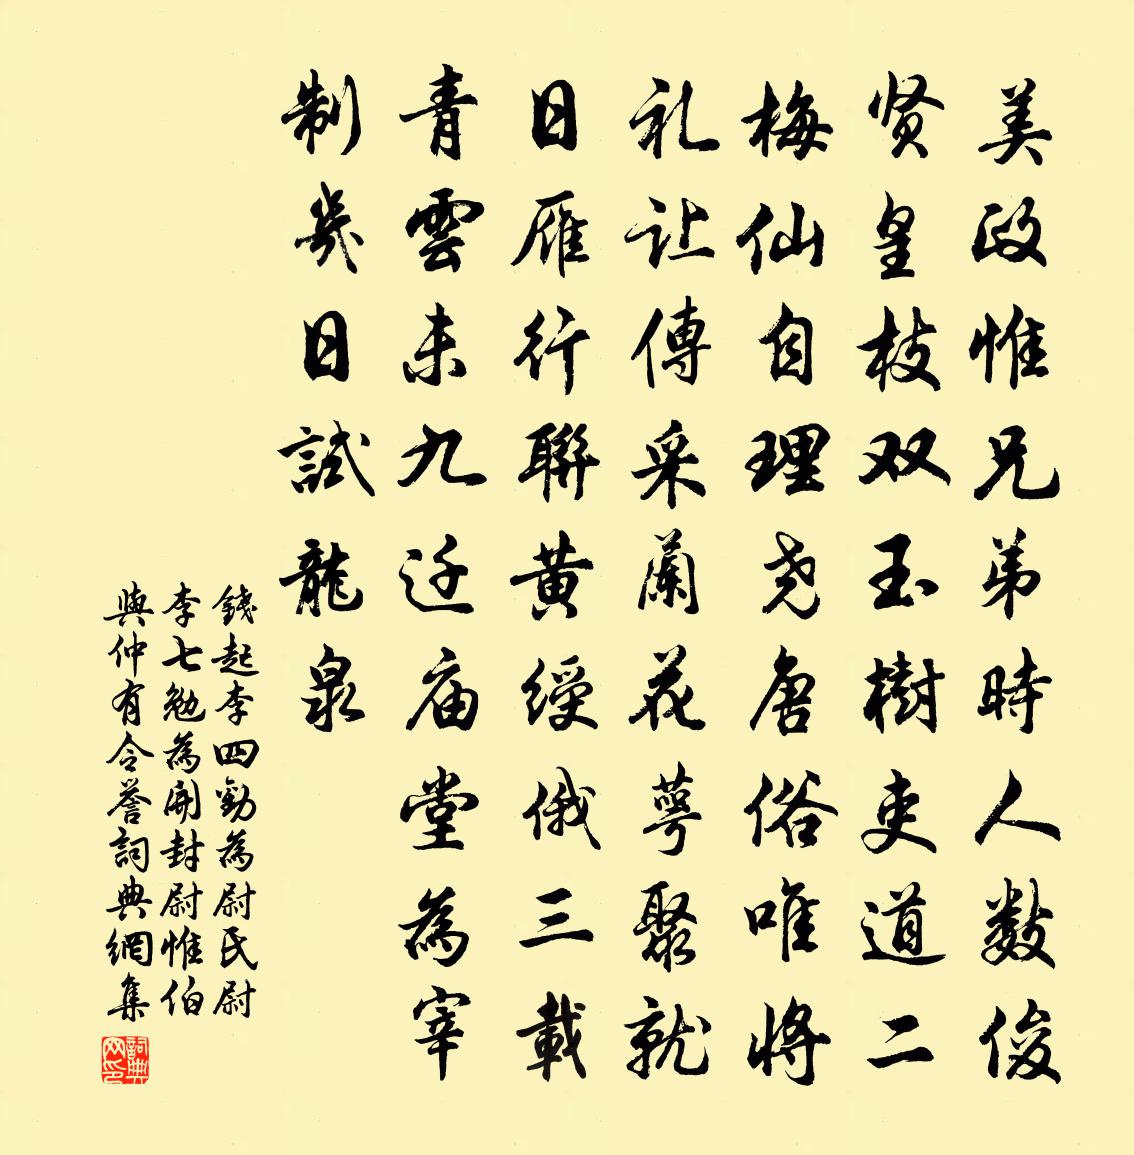 美政惟兄弟時人数俊
贤皇枝双玉樹吏道二
梅仙自理尧唐俗唯将
礼让傳采蘭花萼聚就
日雁行聯黄綬俄三載
青雲未九迁庙堂為宰
制幾日試龍泉
錢起李四勸為尉氏尉
李七勉為開封尉惟伯
與仲有令誉詞典網集
詞典
网印